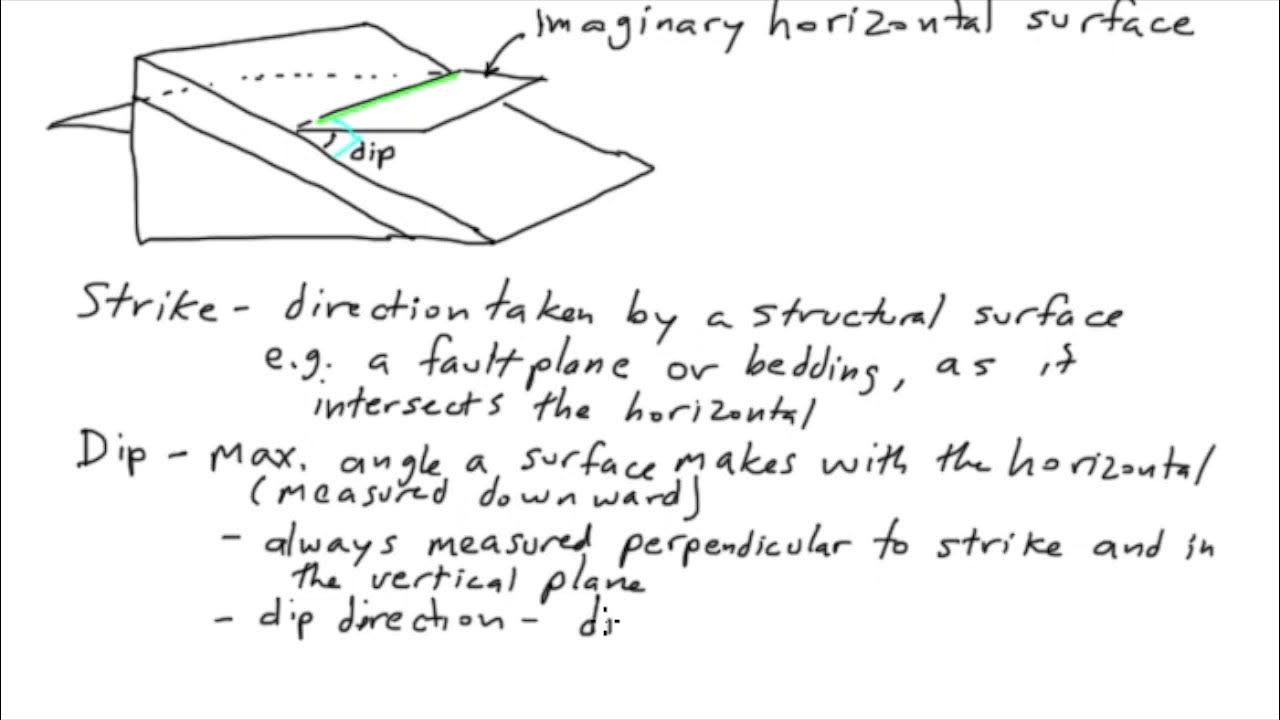 Imaginary horizontal surface
dip
Strike - direction taken by a structural surface
e.g. a fault plane or bedding, as it
intersects the horizontal
Dip - Max. angle a surface makes with the horizontal
(measured downward)
- always measured perpendicular to strike and in
the vertical plane
- dip direction - di